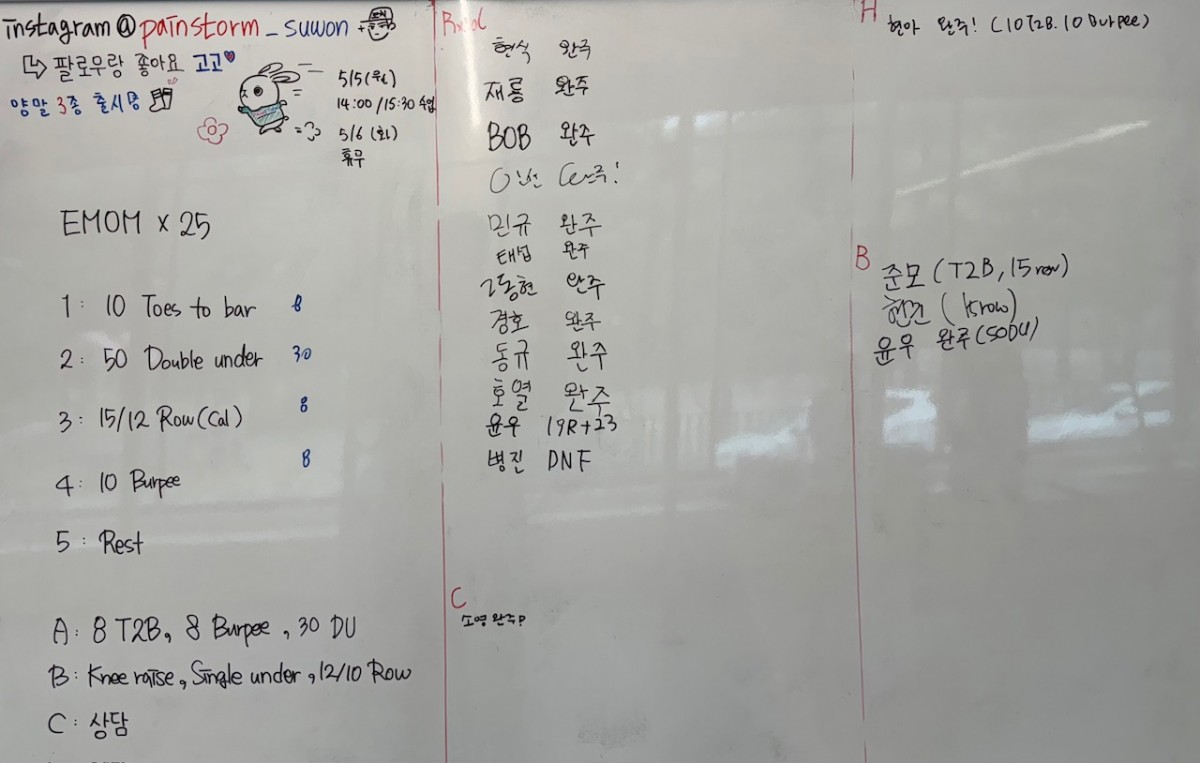 instagram @ painstorm_suwon
↳ 팔로우랑 좋아요 고고♥
양말 3종 출시명
5/5(월)
14:00/15:30 수업
5/6 (화)
휴무
EMOM x 25
1: 10 Toes to bar 8
2: 50 Double under 30
3: 15/12 Row(Cal) 8
4: 10 Burpee 8
5: Rest
A: 8 T2B, 8 Burpee, 30 DU
B: Knee raise, Single under, 12/10 Row
C: 상담
현식 완주
재룡 완주
BOB 완주
민규 완주
태섭 완주
고동현 완주
경호 완주
동규 완주
호열 완주
윤우 19R+23
병진 DNF
C
소영 완주P
A
현아 완주! (10 T2B. 10 Burpee)
B
준모 (T2B, 15 row)
현진 (15row)
윤우 완주(50DU)